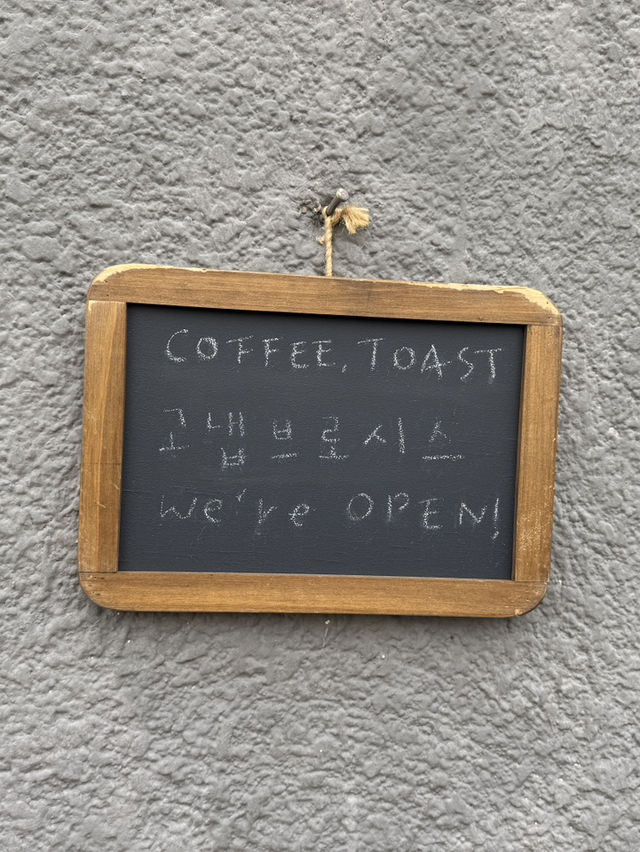 COFFEE, TOAST
고냅브로시스
we're OPEN!